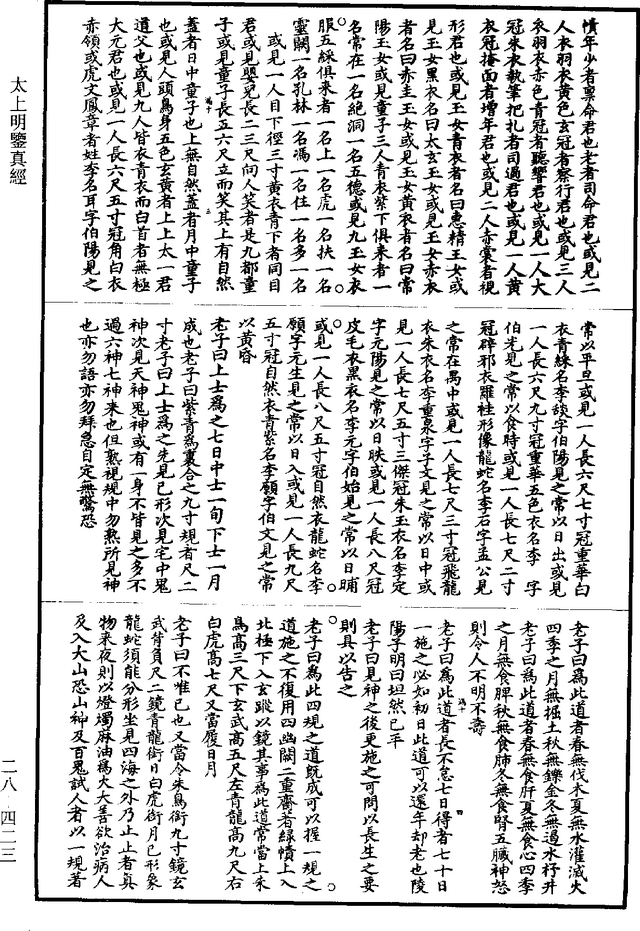 太上明鑒真經
幘年少者稟命君也老者司命君也或見二
人衣羽衣黃色玄冠者察行君也或見三人
衣羽衣赤色青冠者聽響君也或見一人大
冠朱衣執筆把扎者司過君也或見一人黃
衣冠掩面者增年君也或見二人赤囊者視
形君也或見玉女青衣者名曰惠精玉女或
見玉女黑衣名曰太玄玉女或見玉女赤衣
者名曰赤圭玉女或見玉女黃衣者名曰常
陽玉女或見童子三人青衣縈下俱來者一
名常在一名絕洞一名五德或見九玉女衣
服五綵俱來者一名上一名虎一名扶一名
靈關一名孔林一名馮一名住一名多一名
或見一人目下徑三寸黃衣青下者同目
君或見嬰兒長二三尺向人笑者是九都童
子或見童子長五六尺立而笑其上有自然
蓋者日中童子也上無自然蓋者月中童子
也或見人頭鳥身五色玄黃者上上太一君
道父也或見九人皆衣青衣而白首者無極
大元君也或見一人長六尺五寸冠角白衣
赤領或虎文鳳章者姓李名耳字伯陽見之
常以平旦或見一人長六尺七寸冠重華白
衣青綵名李談字伯陽見之常以日出或見
一人長六尺九寸冠重華五色衣名李 字
伯光見之常以食時或見一人長七尺二寸
冠辟邪衣羅袿形像龍蛇名李石字孟公見
之常在禺中或見一人長七尺三寸冠飛龍
衣朱衣名李重泉字子文見之常以日中或
見一人長七尺五寸三傑冠朱玉衣名李定
字元陽見之常以日昳或見一人長八尺冠
皮毛衣黑衣名李元字伯始見之常以日晡
或見一人長八尺五寸冠自然衣龍蛇名李
願字元生見之常以日入或見一人長九尺
五寸冠自然衣青紫名李願字伯文見之常
以黃昏
老子曰上士為之七日中士一旬下士一月
成也老子曰紫青為裏合之九寸規者尺二
寸老子曰上士為之先見已形次見宅中鬼
神次見天神鬼神或有一身不皆見之多不
過六神七神來也但熟視規中勿熟所見神
也亦勿語亦勿拜急自定無驚恐
老子曰為此道者春無伐木夏無水灌滅火
四季之月無掘土秋無鑠金冬無遏水杼井
老子曰為此道者春無食肝夏無食心四季
之月無食脾秋無食肺冬無食腎五臟神怒
則令人不明不壽
老子曰為此道者長不怠七日得者七十日
一施之必如初日此道可以還年却老也陵
陽子明曰坦然已平
老子曰見神之後更施之可問以長生之要
則具以告之
老子曰為此四規之道既成可以握一規之
道施之不復用四幽闕二重齋著綠幘上入
北極下入玄蹤以鏡其事為此道常當上朱
鳥高三尺下玄武高五尺左青龍高九尺右
白虎高七尺又當履日月
老子曰不惟已也又當令朱鳥銜九寸鏡玄
武背負尺二鏡青龍銜日白虎銜月已形象
龍蛇須能分形坐見四海之外乃止止者真
物來夜則以燈燭麻油為火大善欲治病人
及入大山恐山神及百鬼試人者以一規著
二八 四二三